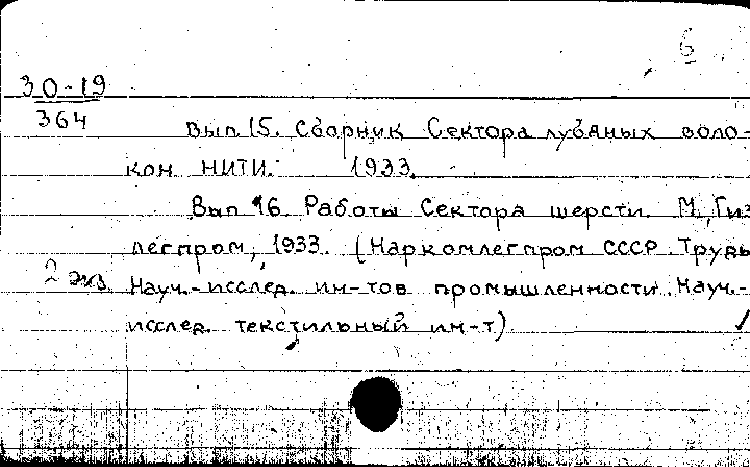 6
30-19
364
Вып. 15. Сборник Сектора лубяных воло-
кон НИТИ. 1933.
Вып. 16. Работы Сектора шерсти. М., Гиз
легпром, 1933. (Наркомлегпром СССР. Труды
2 экз. Науч.-исслед. ин-тов промышленности. Науч.-
исслед. текстильный ин-т)